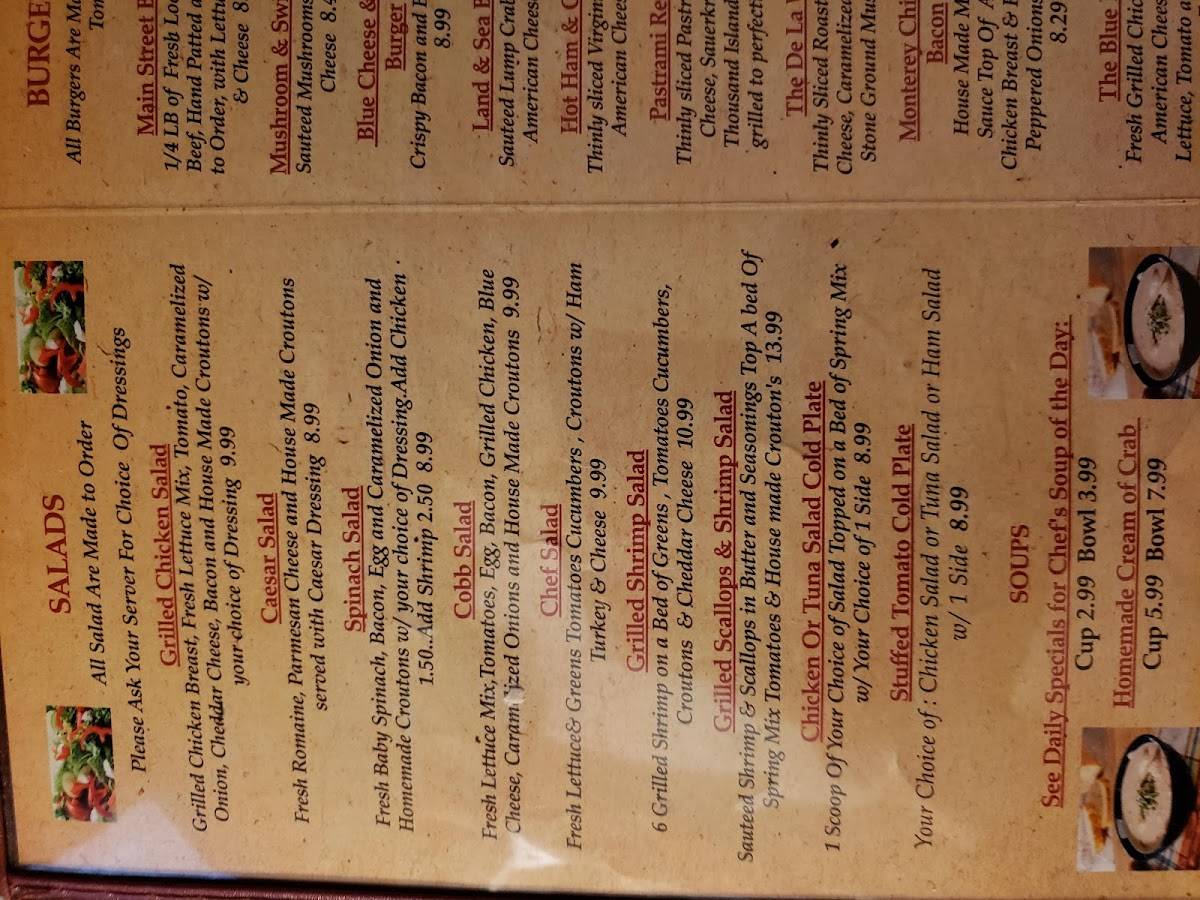 SALADS
All Salad Are Made to Order
Please Ask Your Server For Choice Of Dressings
Grilled Chicken Salad
Grilled Chicken Breast, Fresh Lettuce Mix, Tomato, Caramelized
Onion, Cheddar Cheese, Bacon and House Made Croutons w/
your choice of Dressing 9.99
Caesar Salad
Fresh Romaine, Parmesan Cheese and House Made Croutons
served with Caesar Dressing 8.99
Spinach Salad
Fresh Baby Spinach, Bacon, Egg and Caramelized Onion and
Homemade Croutons w/ your choice of Dressing.Add Chicken
1.50..Add Shrimp 2.50 8.99
Cobb Salad
Fresh Lettuce Mix,Tomatoes, Egg, Bacon, Grilled Chicken, Blue
Cheese, Caramelized Onions and House Made Croutons 9.99
Chef Salad
Fresh Lettuce& Greens Tomatoes Cucumbers , Croutons w/ Ham
Turkey & Cheese 9.99
Grilled Shrimp Salad
6 Grilled Shrimp on a Bed of Greens , Tomatoes Cucumbers,
Croutons & Cheddar Cheese 10.99
Grilled Scallops & Shrimp Salad
Sauteed Shrimp & Scallops in Butter and Seasonings Top A bed Of
Spring Mix Tomatoes & House made Crouton's 13.99
Chicken Or Tuna Salad Cold Plate
1 Scoop Of Your Choice of Salad Topped on a Bed of Spring Mix
w/ Your Choice of 1 Side 8.99
Stuffed Tomato Cold Plate
Your Choice of : Chicken Salad or Tuna Salad or Ham Salad
w/ 1 Side 8.99
SOUPS
See Daily Specials for Chef's Soup of the Day:
Cup 2.99 Bowl 3.99
Homemade Cream of Crab
Cup 5.99 Bowl 7.99
BURGE
All Burgers Are
Main Street
1/4 LB of Fresh
Beef, Hand Patted
to Order, with
& Cheese
Mushroom &
Sauteed Mushrooms
Cheese
Blue Cheese &
Burger
Crispy Bacon and
8.99
Land & Sea
Sauteed Lump Crab
American Cheese
Hot Ham &
Thinly sliced
American
Pastrami
Thinly sliced
Cheese,
Thousand Island
grilled to
The De La
Thinly Sliced
Cheese, Caramelized
Stone Ground
Monterey
Bacon
House Made
Sauce Top Of
Chicken Breast &
Peppered Onions
8.29
The Blue
Fresh Grilled
American
Lettuce, Tomato